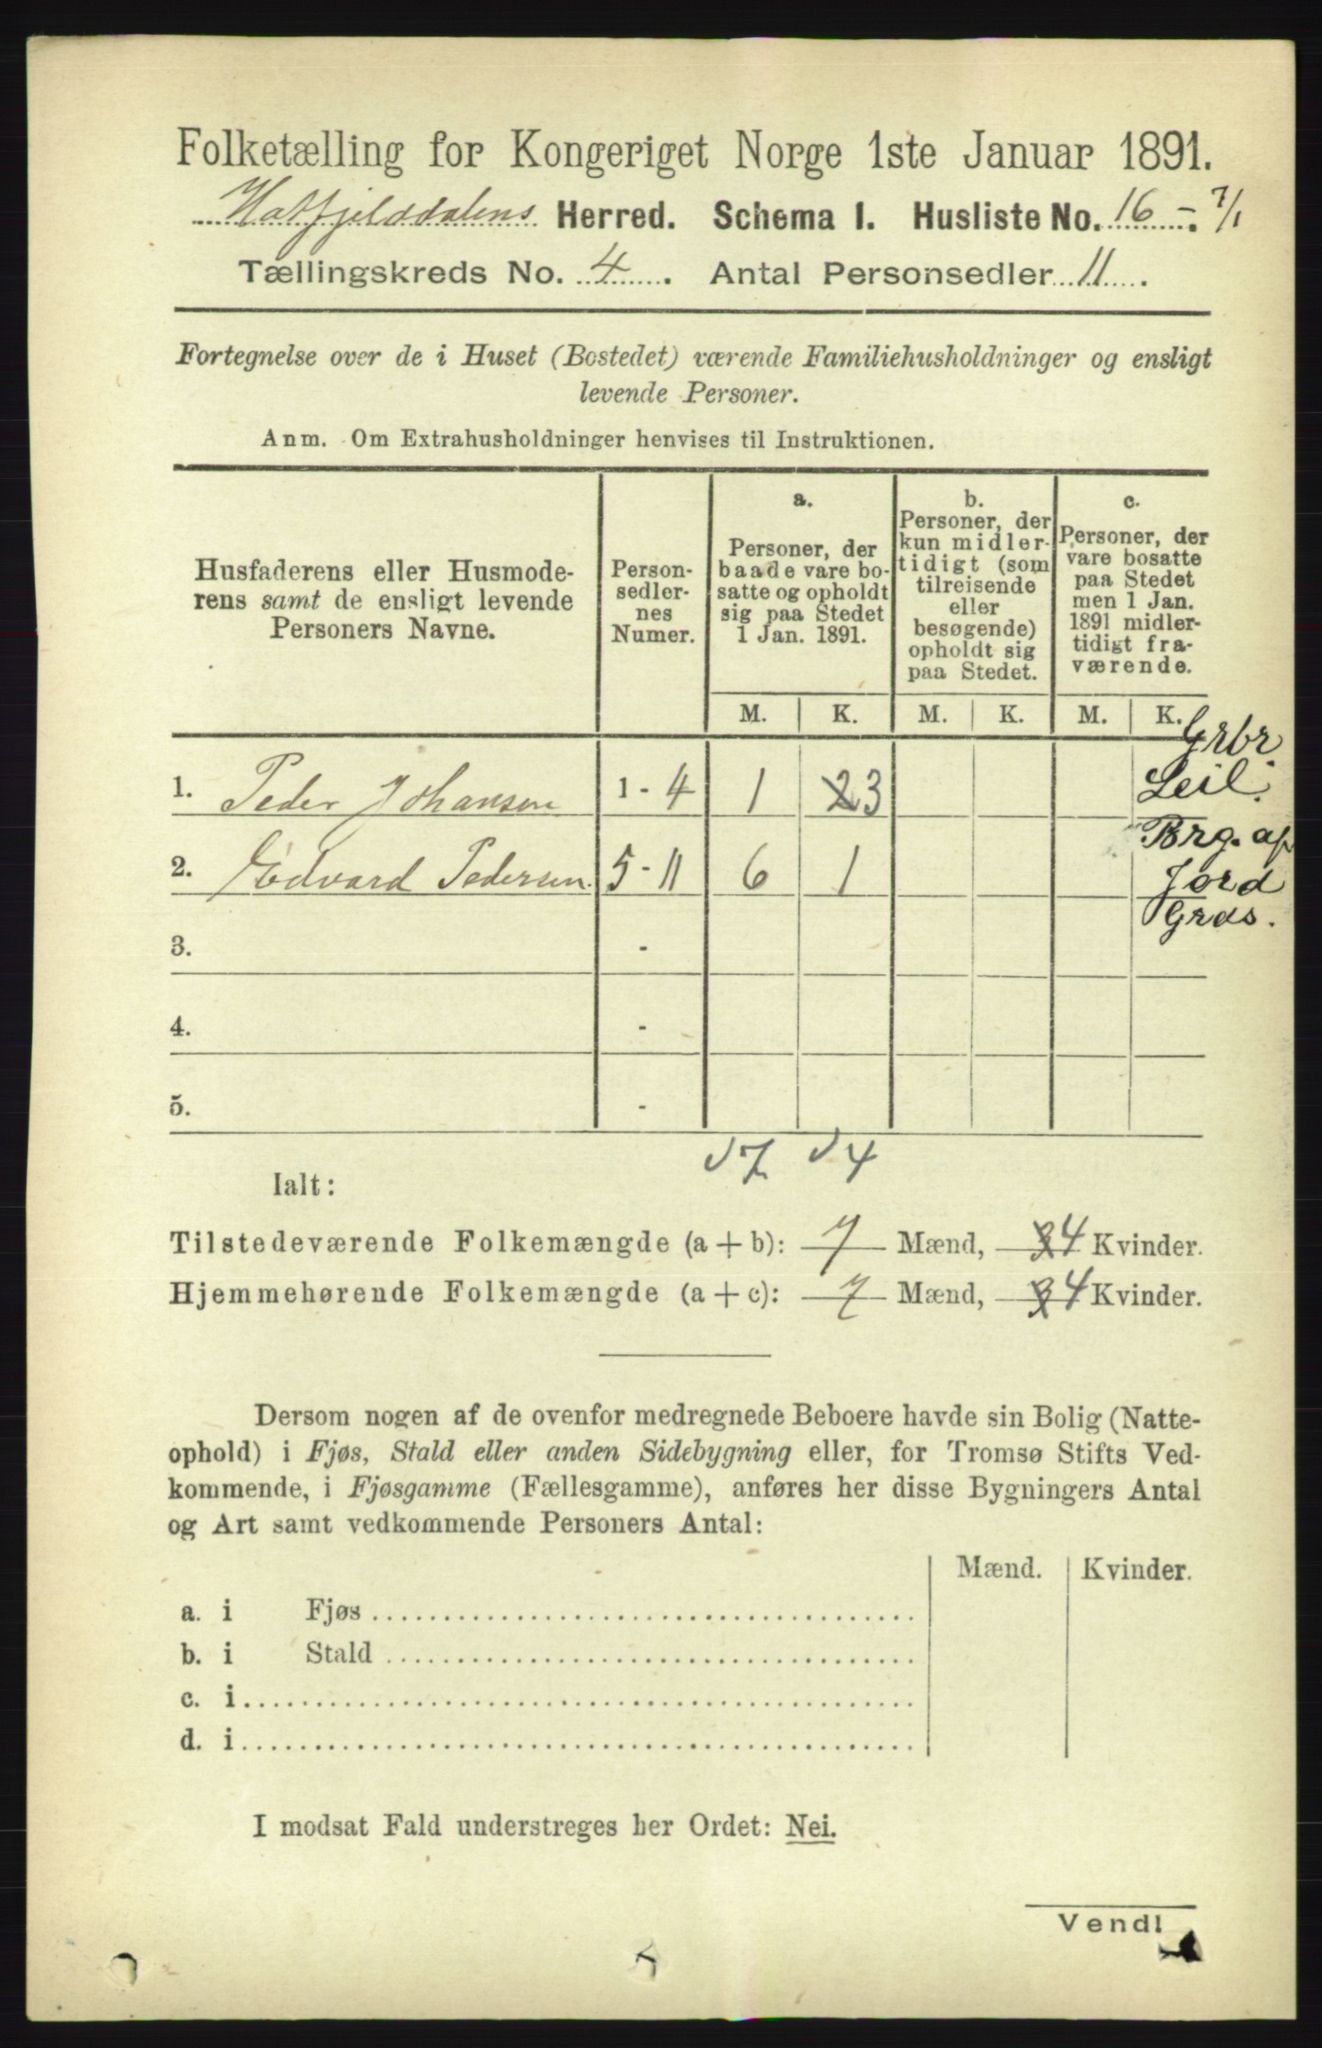 Folketælling for Kongeriget Norge 1ste Januar 1891.
Hatfjelddalens Herred. Schema I. Husliste No. 16 - 7/1
Tællingskreds No. 4. Antal Personsedler 11.
Fortegnelse over de i Huset (Bostedet) værende Familiehusholdninger og ensligt
levende Personer.
Anm. Om Extrahusholdninger henvises til Instruktionen.
Husfaderens eller Husmode-
rens samt de ensligt levende
Personers Navne.
Person-
sedler-
nes
Numer.
a.
Personer, der
baade vare bo-
satte og opholdt
sig paa Stedet
1 Jan. 1891.
b.
Personer, der
kun midler-
tidigt (som
tilreisende
eller
besøgende)
opholdt sig
paa Stedet.
c.
Personer, der
vare bosatte
paa Stedet
men 1 Jan.
1891 midler-
tidigt fra-
værende.
M. K. M. K. M. K.
Grbr.
1. Peder Johansen 1 - 4 1 2 3 Leil.
Brg. af
2. Edvard Pedersen. 5 - 11 6 1 Jord
Grds.
3. -
4. -
5. -
7 4
Ialt:
Tilstedeværende Folkemængde (a + b): 7 Mænd, 3 4 Kvinder.
Hjemmehørende Folkemængde (a + c): 7 Mænd, 3 4 Kvinder.
Dersom nogen af de ovenfor medregnede Beboere havde sin Bolig (Natte-
ophold) i Fjøs, Stald eller anden Sidebygning eller, for Tromsø Stifts Ved-
kommende, i Fjøsgamme (Fællesgamme), anføres her disse Bygningers Antal
og Art samt vedkommende Personers Antal:
Mænd. Kvinder.
a. i Fjøs
b. i Stald
c. i
d. i
I modsat Fald understreges her Ordet: Nei.
Vend!